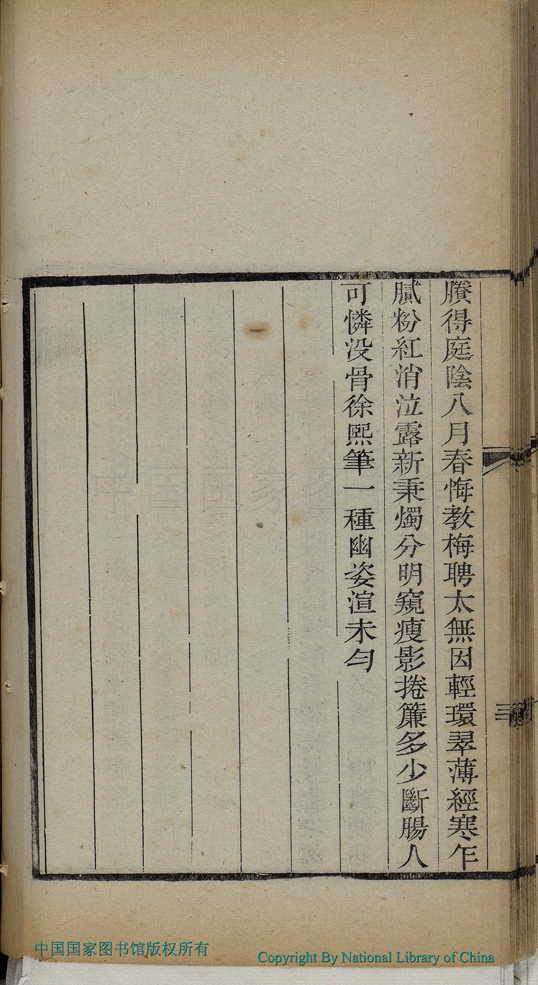 賸得庭陰八月春悔教梅聘太無因輕環翠薄經寒乍
膩粉紅消泣露新秉燭分明窺瘦影捲簾多少斷腸人
可憐没骨徐熙筆一種幽姿渲未勻
三
中国国家图书馆版权所有
Copyright By National Library of China